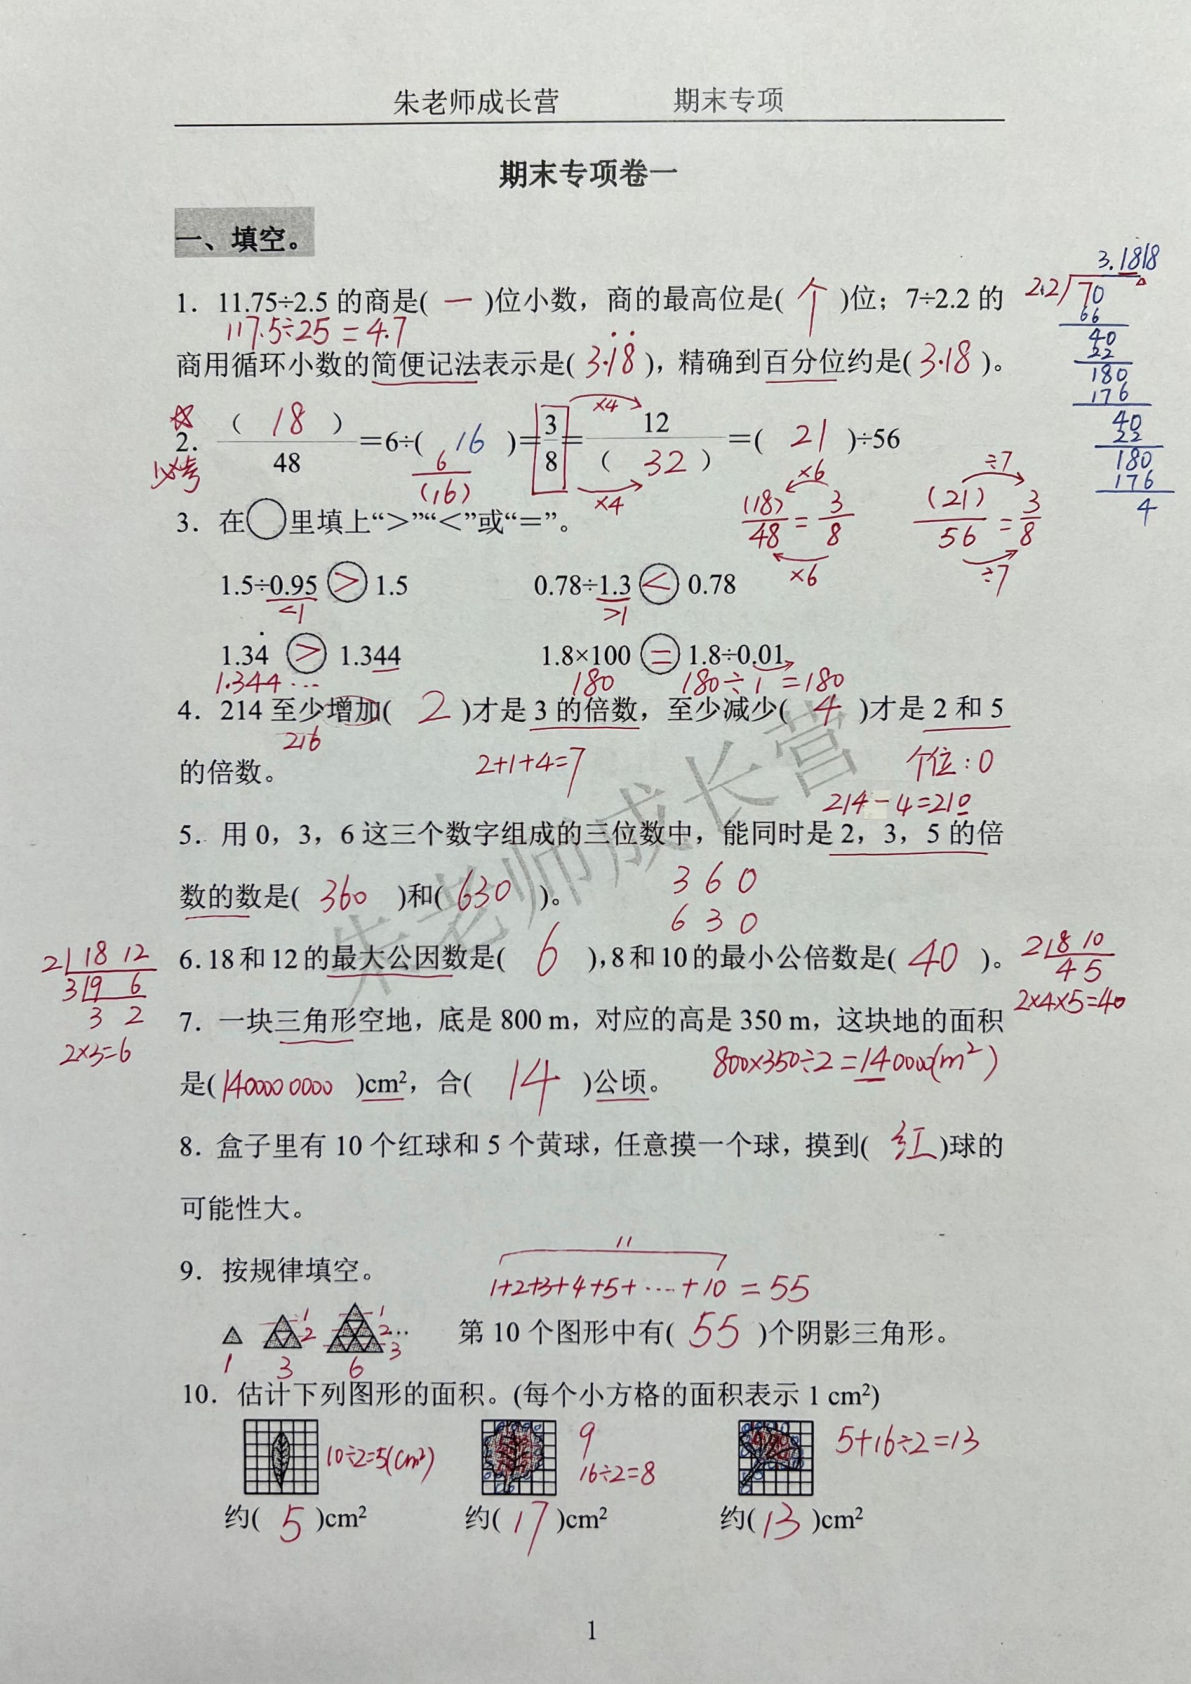 朱老师成长营 期末专项
期末专项卷一
一、填空。
3.1818
2.2 70
66
40
22
180
176
40
22
180
176
4
1. 11.75÷2.5 的商是( 一 )位小数，商的最高位是( 个 )位；7÷2.2 的
117.5÷25=4.7
商用循环小数的简便记法表示是( 3.1̇8̇ )，精确到百分位约是( 3.18 )。
☆
必考
2. ( 18 )/48=6÷( 16 )=3/8=12/( 32 )=( 21 )÷56
×4
6/(16)
×4
×6
(18)/48=3/8
×6
÷7
(21)/56=3/8
÷7
3. 在○里填上“＞”“＜”或“＝”。
1.5÷0.95 > 1.5 0.78÷1.3 < 0.78
<1 >1
1.34̇ > 1.344 1.8×100 = 1.8÷0.01
1.344… 180 180÷1=180
4. 214 至少增加( 2 )才是 3 的倍数，至少减少( 4 )才是 2 和 5
216
的倍数。 2+1+4=7 个位：0
214-4=210
5. 用 0，3，6 这三个数字组成的三位数中，能同时是 2，3，5 的倍
数的数是( 360 )和( 630 )。 360
630
6. 18 和 12 的最大公因数是( 6 ),8 和 10 的最小公倍数是( 40 )。
2 18 12
3 9 6
3 2
2×3=6
2 8 10
4 5
2×4×5=40
7. 一块三角形空地，底是 800 m，对应的高是 350 m，这块地的面积
800×350÷2=140000(m²)
是( 1400000000 )cm²，合( 14 )公顷。
8. 盒子里有 10 个红球和 5 个黄球，任意摸一个球，摸到( 红 )球的
可能性大。
9. 按规律填空。
11
1+2+3+4+5+…+10=55
1
1 2
1 2 3
… 第 10 个图形中有( 55 )个阴影三角形。
1 3 6
10. 估计下列图形的面积。(每个小方格的面积表示 1 cm²)
10÷2=5(cm²)
9
16÷2=8
5+16÷2=13
约( 5 )cm² 约( 17 )cm² 约( 13 )cm²
朱老师成长营
1